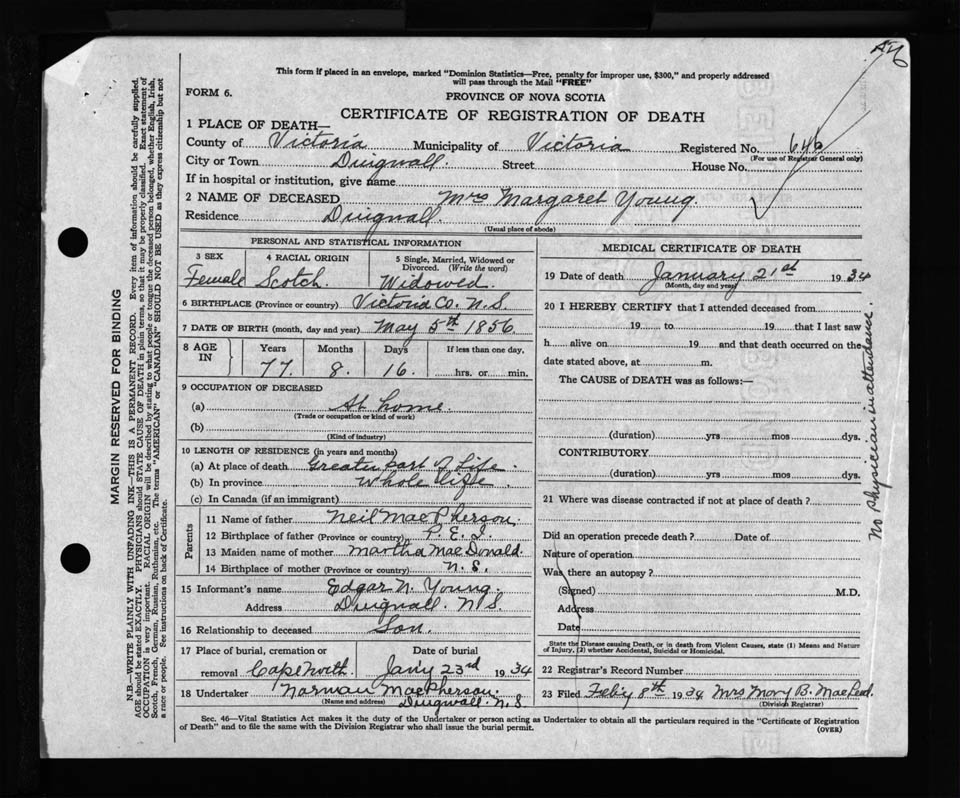 This form if placed in an envelope, marked "Dominion Statistics—Free, penalty for improper use, $300," and properly addressed
will pass through the Mail "FREE"
FORM 6.
PROVINCE OF NOVA SCOTIA
CERTIFICATE OF REGISTRATION OF DEATH
1 PLACE OF DEATH—
County of Victoria Municipality of Victoria Registered No. 646
(For use of Registrar General only)
City or Town Dingwall. Street House No.
If in hospital or institution, give name
2 NAME OF DECEASED Mrs Margaret Young.
Residence Dingwall.
(Usual place of abode)
PERSONAL AND STATISTICAL INFORMATION
3 SEX 4 RACIAL ORIGIN 5 Single, Married, Widowed or
Divorced. (Write the word)
Female Scotch. Widowed.
6 BIRTHPLACE (Province or country) Victoria Co. N.S.
7 DATE OF BIRTH (month, day and year) May 5th 1856
8 AGE IN Years Months Days If less than one day,
77. 8. 16. hrs. or min.
9 OCCUPATION OF DECEASED
(a) At home.
(Trade or occupation or kind of work)
(b)
(Kind of industry)
10 LENGTH OF RESIDENCE (in years and months)
(a) At place of death Greater part of Life.
(b) In province Whole life.
(c) In Canada (if an immigrant)
Parents
11 Name of father Neil MacPherson.
12 Birthplace of father (Province or country) P.E.I.
13 Maiden name of mother Martha MacDonald.
14 Birthplace of mother (Province or country) N.S.
15 Informant's name Edgar N. Young
Address Dingwall. N.S.
16 Relationship to deceased Son.
17 Place of burial, cremation or Date of burial
removal Cape North Jany 23rd 1934
18 Undertaker Norman MacPherson.
(Name and address) Dingwall. N.S
MEDICAL CERTIFICATE OF DEATH
19 Date of death January 21st 1934
(Month, day and year)
20 I HEREBY CERTIFY that I attended deceased from
19 to 19 that I last saw
h alive on 19 and that death occurred on the
date stated above, at m.
The CAUSE of DEATH was as follows:—
(duration) yrs mos dys.
CONTRIBUTORY
(duration) yrs mos dys.
21 Where was disease contracted if not at place of death?
Did an operation precede death? Date of
Nature of operation
Was there an autopsy?
(Signed) M.D.
Address
Date
State the Disease causing Death, or in death from Violent Causes, state (1) Means and Nature
of Injury, (2) whether Accidental, Suicidal or Homicidal.
22 Registrar's Record Number
23 Filed Feb'y 8th 1934 Mrs Mary B. MacLeod.
(Division Registrar)
No physician in attendance.
Sec. 46—Vital Statistics Act makes it the duty of the Undertaker or person acting as Undertaker to obtain all the particulars required in the "Certificate of Registration
of Death" and to file the same with the Division Registrar who shall issue the burial permit.
(OVER)
MARGIN RESERVED FOR BINDING
N.B.—WRITE PLAINLY WITH UNFADING INK—THIS IS A PERMANENT RECORD. Every item of information should be carefully supplied.
AGE should be stated EXACTLY. PHYSICIANS should STATE CAUSE OF DEATH in plain terms, so that it may be properly classified. Exact statement of
OCCUPATION is very important. RACIAL ORIGIN will be described by stating to what people or tongue the deceased person belonged, whether English, Irish,
Scotch, French, German, Russian, Ruthenian, etc. The terms "AMERICAN" or "CANADIAN" SHOULD NOT BE USED as they express citizenship but not
a race or people. See instructions on back of Certificate.